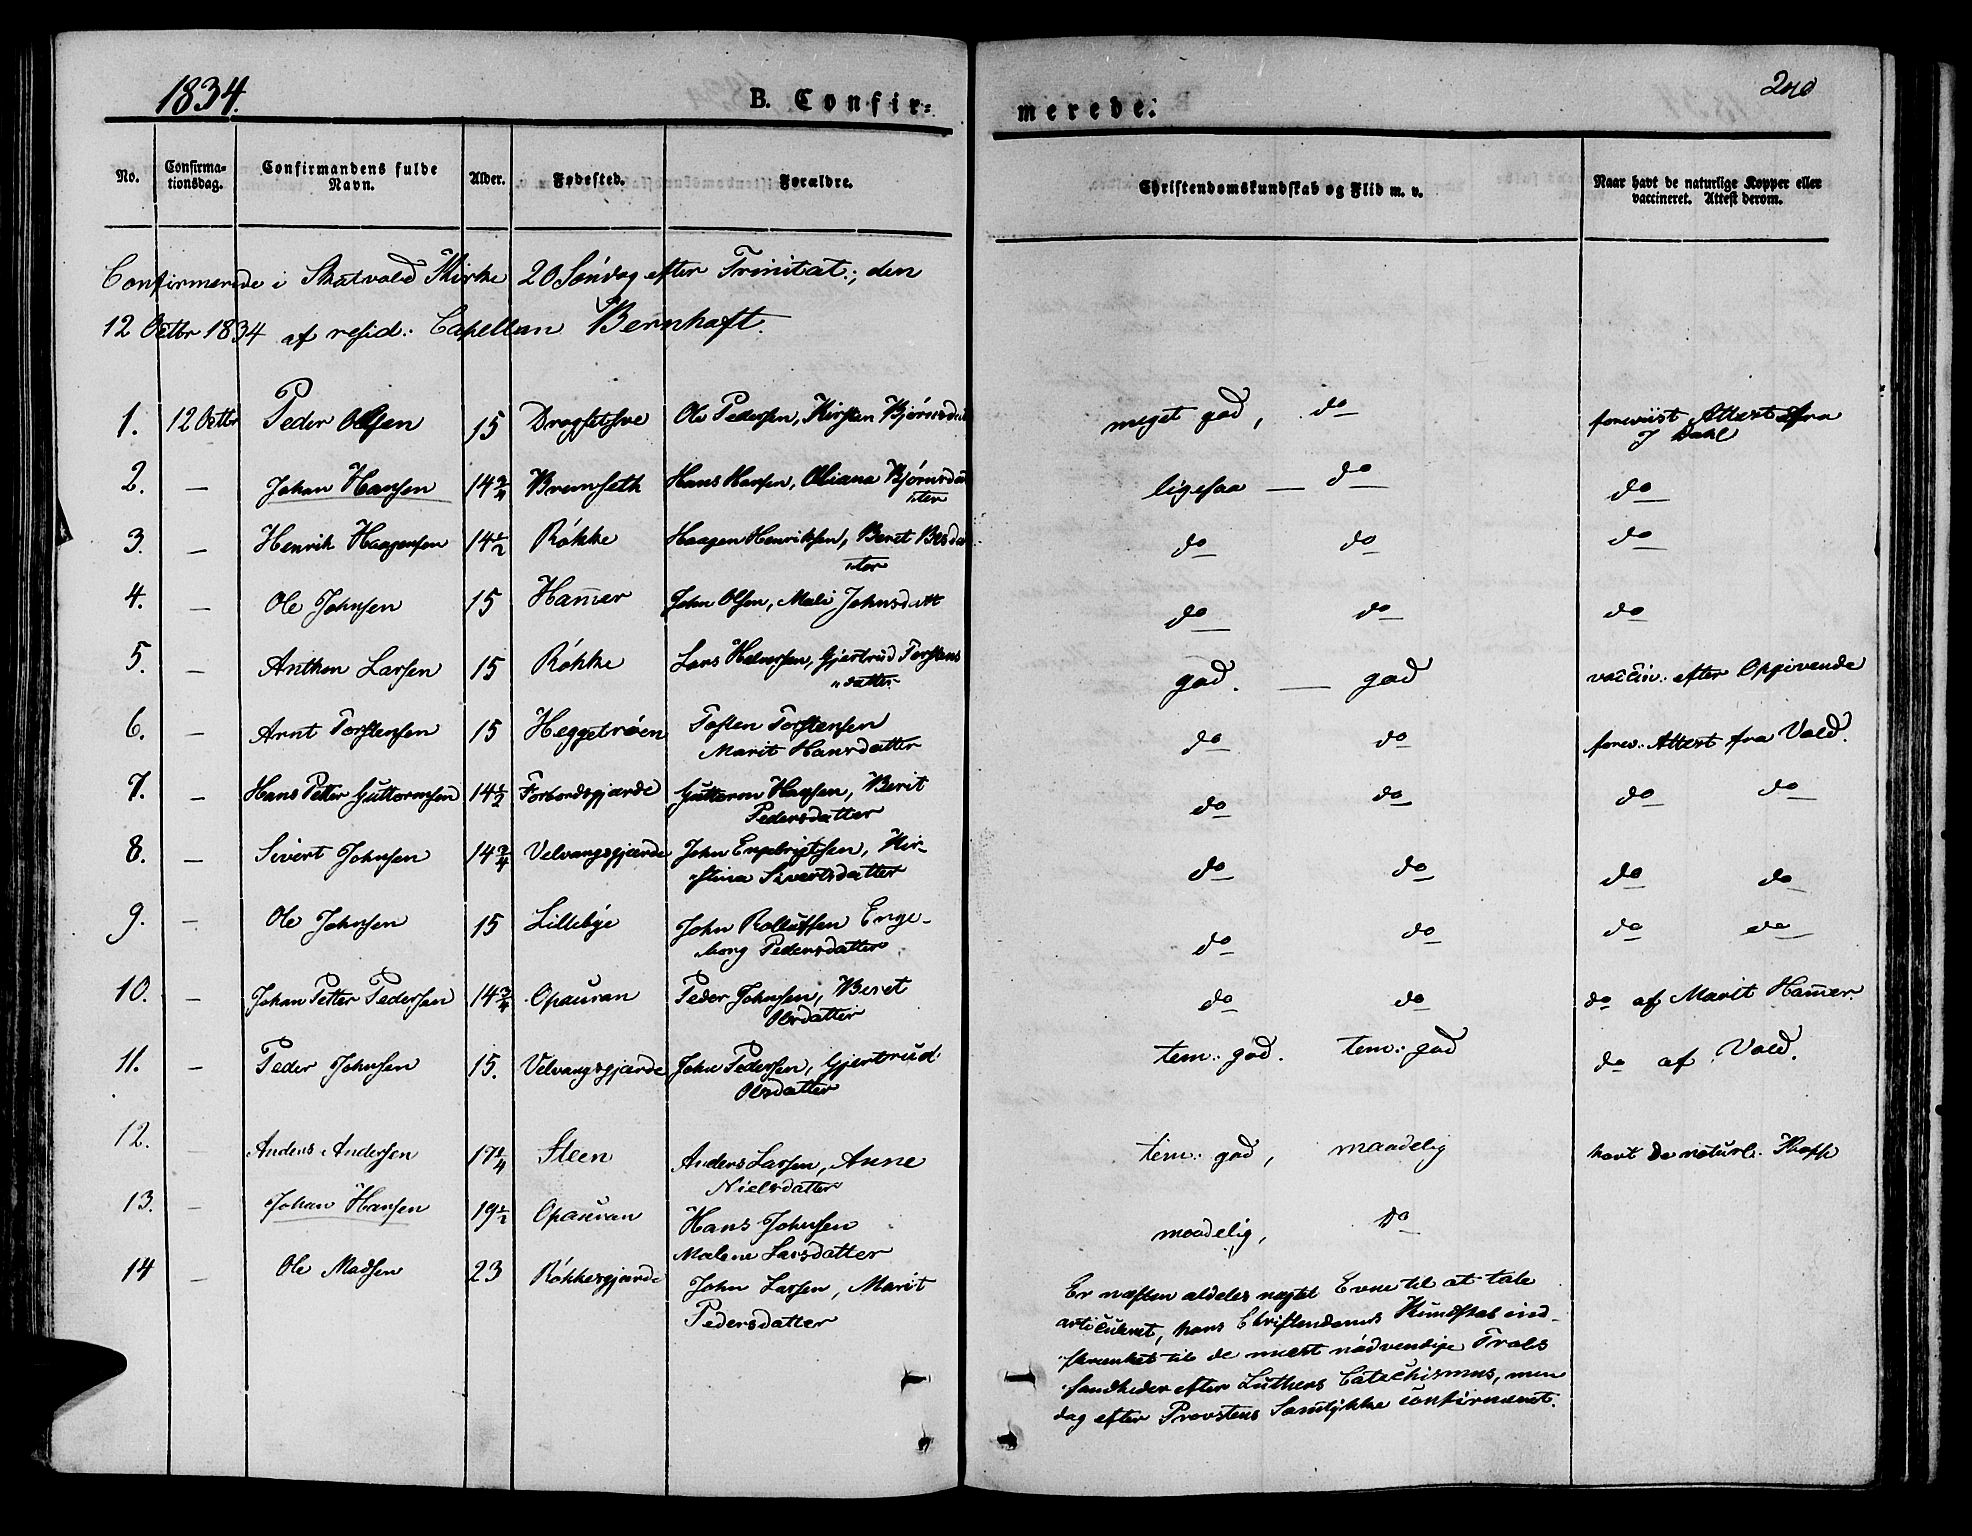 1834. B. Confir=
merede. 240
No. Confirma=tionsdag. Confirmandens fulde Navn. Alder. Fødested. Forældre. Christendomskundskab og Flid m. v. Naar havt de naturlige Kopper eller vaccineret. Attest derom.
Confirmerede i Skatvold Kirke 20 Søndag efter Trinitat:, den
12 Octbr 1834 af resid: Capellan Bernhoft.
1. 12 Octbr Peder Olsen 15 Ole Pedersen, Kirsten Bjørnsdatt meget god, do foreviist Attest fra
J Dahl
2. — Johan Hansen 14 3/4 Bremseth Hans Hansen, Oliana Bjørnsda ligesaa — do do
"ter
3. — Henrik Haagensen 14 1/2 Røkke Haagen Henriksen, Beret do do do
"ter
4. — Ole Johnsen 15 Ham̄er John Olsen, Mali Johnsdatt do do do
5. — Anthon Larsen 15 Røkke Lars Halvorsen, Gjertrud Torstens god. — god vaccin: efter Opgivende
"datter
6. — Arnt Torstensen 15 Heggetrøen Tosten Torstensen do do forev: Attest fra Vold.
Marit Hansdatter
7. — Hans Petter Guttormsen 14 1/2 Forbordsgjærde Guttorm Hansen, Berit do do do do
Pedersdatter
8. — Sivert Johnsen 14 3/4 Velvangsgjærde John Engebrigtsen, Kir- do do do do
stina Sivertsdatter
9. — Ole Johnsen 15 Lillebye John Enge- do do do do
borg Pedersdatter
10. — Johan Petter Pedersen 14 3/4 Opauran Peder Johnsen, Beret do do do af Marit Ham̄er.
Olsdatter
11. — Peder Johnsen 15. Velvangsgjærde John Pedersen, Gjertrud tem: god. tem: god do af Vold.
Olsdatter
12. — Anders Andersen 17 1/4 Steen Anders Larsen, Anne tem: god, maadelig havt de naturl. Kopp
Nielsdatter
13. — Johan Hansen 19 1/2 Opauran Hans Johnsen maadelig, do
Malene Larsdatter
14 — Ole Madsen 23 Røkkesgjærde John Larsen, Marit
Pedersdatter
Er næsten aldeles nægtet Evne til at tale
articuleret, hans Christendoms Kundskab ind-
skrænket til de meest nødvendige Troes
sandheder efter Luthers Catechismus, men
dog efter Provstens Samtykke confirmeret.